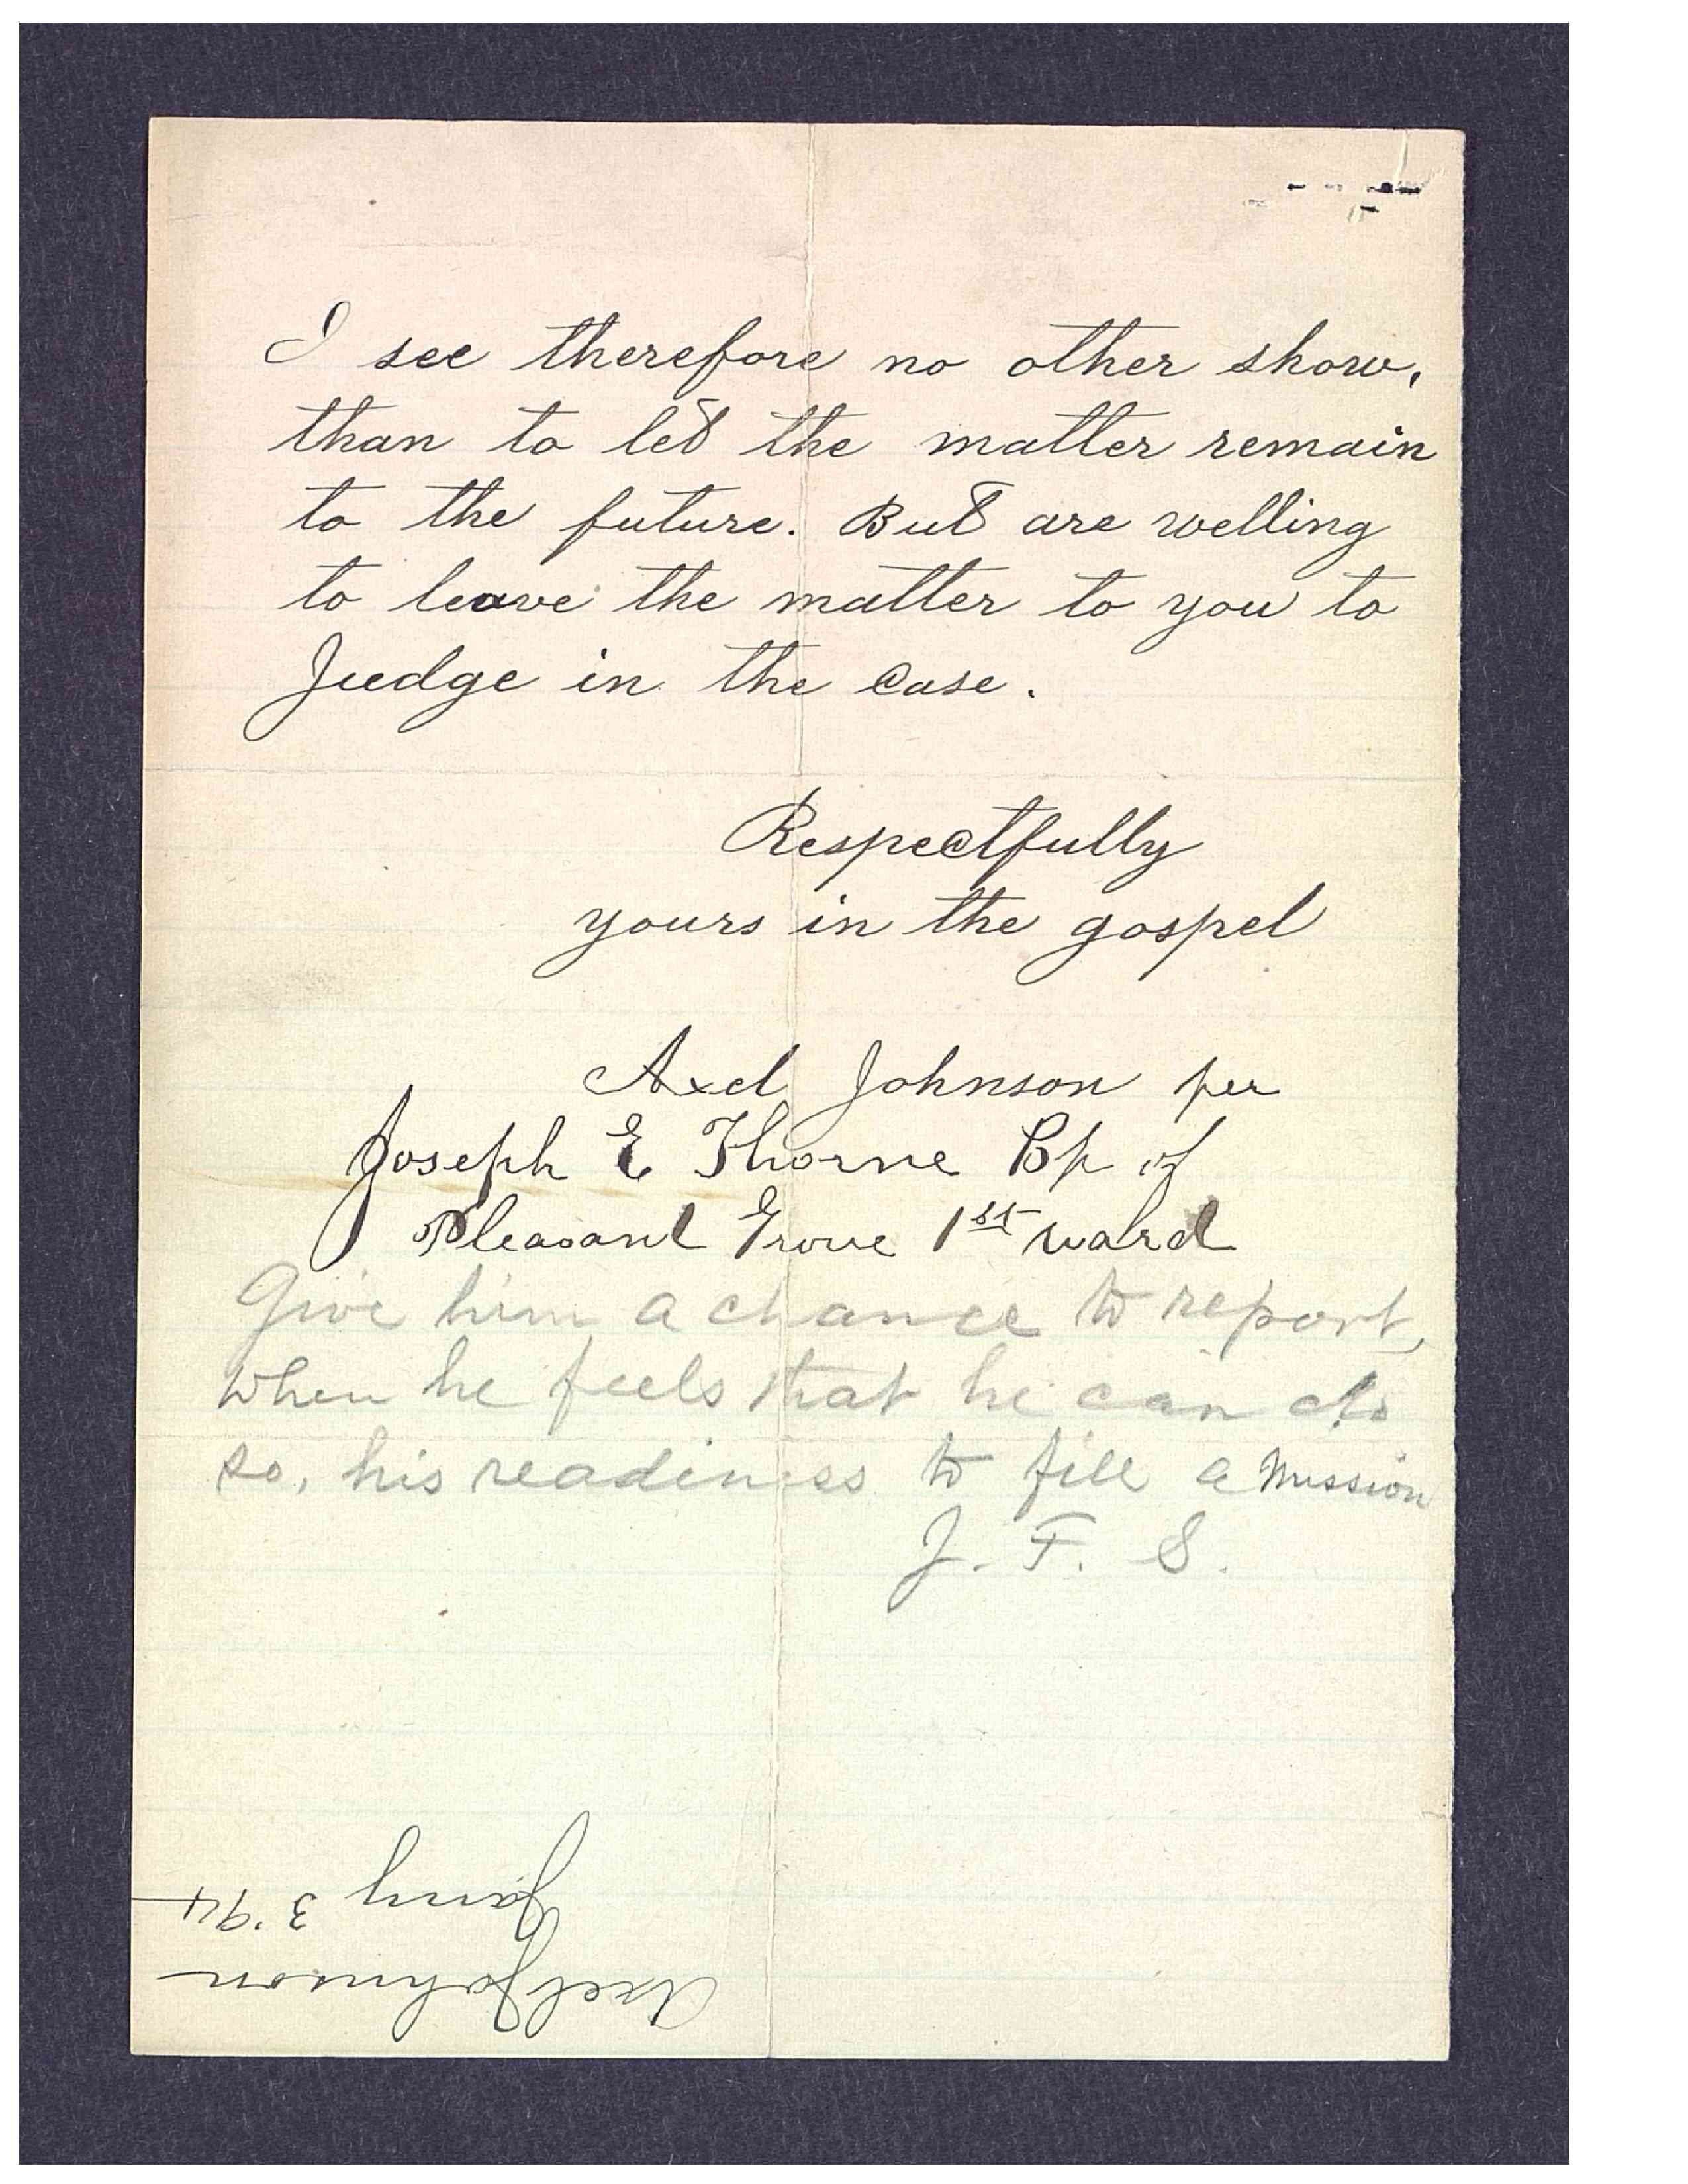 I see therefore no other show,
than to let the matter remain
to the future. But are welling
to leave the matter to you to
Judge in the case.
Respectfully
yours in the gospel
Axel Johnson per
Joseph E Thorne Bp of
Pleasant Grove 1st ward
Give him a chance to report,
when he feels that he can do
so, his readiness to fill a mission
J. F. S.
Axel Johnson
Jany 3 '94